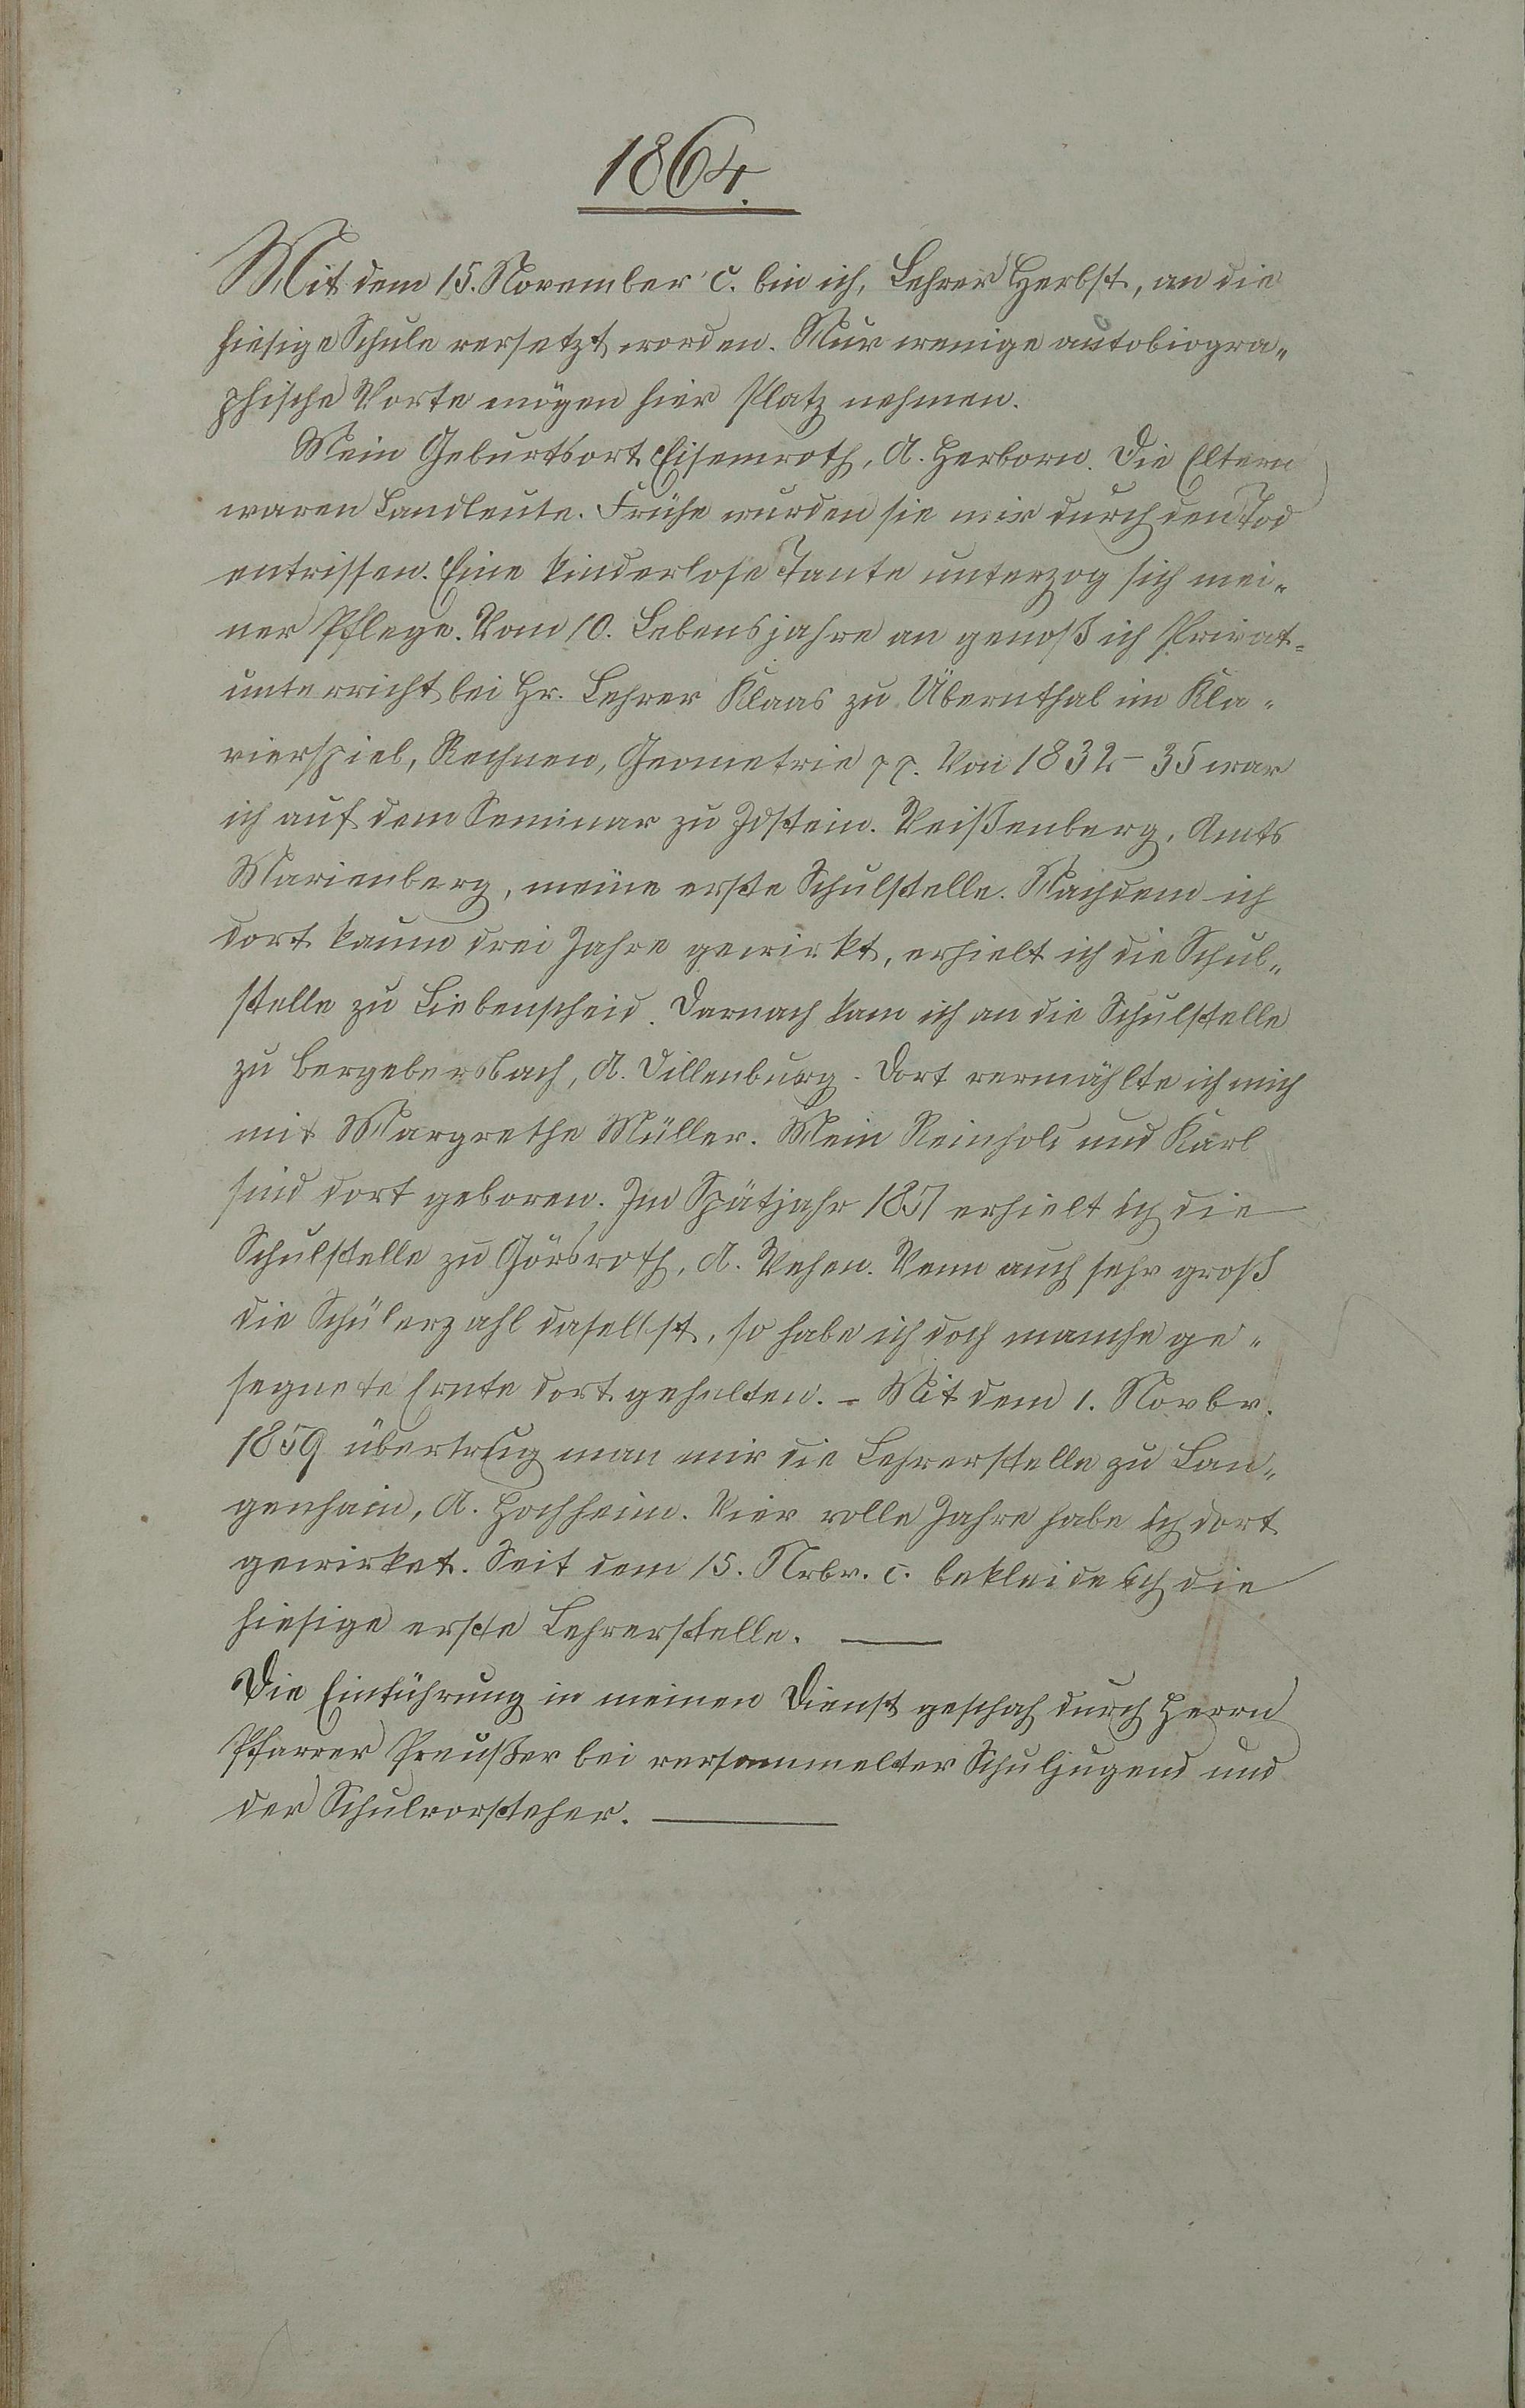 1864.
Mit dem 15. November c. bin ich, Lehrer Herbst, an die
hiesige Schule versetzt worden. Nur wenige autobiogra„
phische Worte mögen hier Platz nehmen.
Mein Geburtsort Eisemroth, A. Herborn. Die Eltern
waren Landleute. Frühe wurden sie mir durch den Tod
entrissen. Eine kinderlose Tante unterzog sich mei„
ner Pflege. Vom 10. Lebensjahre an genoß ich Privat„
unterricht bei Hr. Lehrer Klaas zu Übernthal im Kla„
vierspiel, Rechnen, Geometrie pp. Von 1832–35 war
ich auf dem Seminar zu Idstein. Weißenberg, Amts
Marienberg, meine erste Schulstelle. Nachdem ich
dort kaum drei Jahre gewirkt, erhielt ich die Schul„
stelle zu Liebenscheid. Darnach kam ich an die Schulstelle
zu Bergebersbach, A. Dillenburg. Dort vermählte ich mich
mit Margrethe Müller. Mein Reinhold und Karl
sind dort geboren. Im Spätjahr 1851 erhielt ich die
Schulstelle zu Görsroth, A. Wehen. Wenn auch sehr groß
die Schülerzahl daselbst, so habe ich doch manche ge„
segnete Ernte dort gehalten. – Mit dem 1. Novbr.
1859 übertrug man mir die Lehrerstelle zu Lan„
genhain, A. Hochheim. Vier volle Jahre habe ich dort
gewirket. Seit dem 15. Nvbr. c. bekleide ich die
hiesige erste Lehrerstelle. —
Die Einführung in meinen Dienst geschah durch Herrn
Pfarrer Preußer bei versammelter Schuljugend und
der Schulvorsteher. —